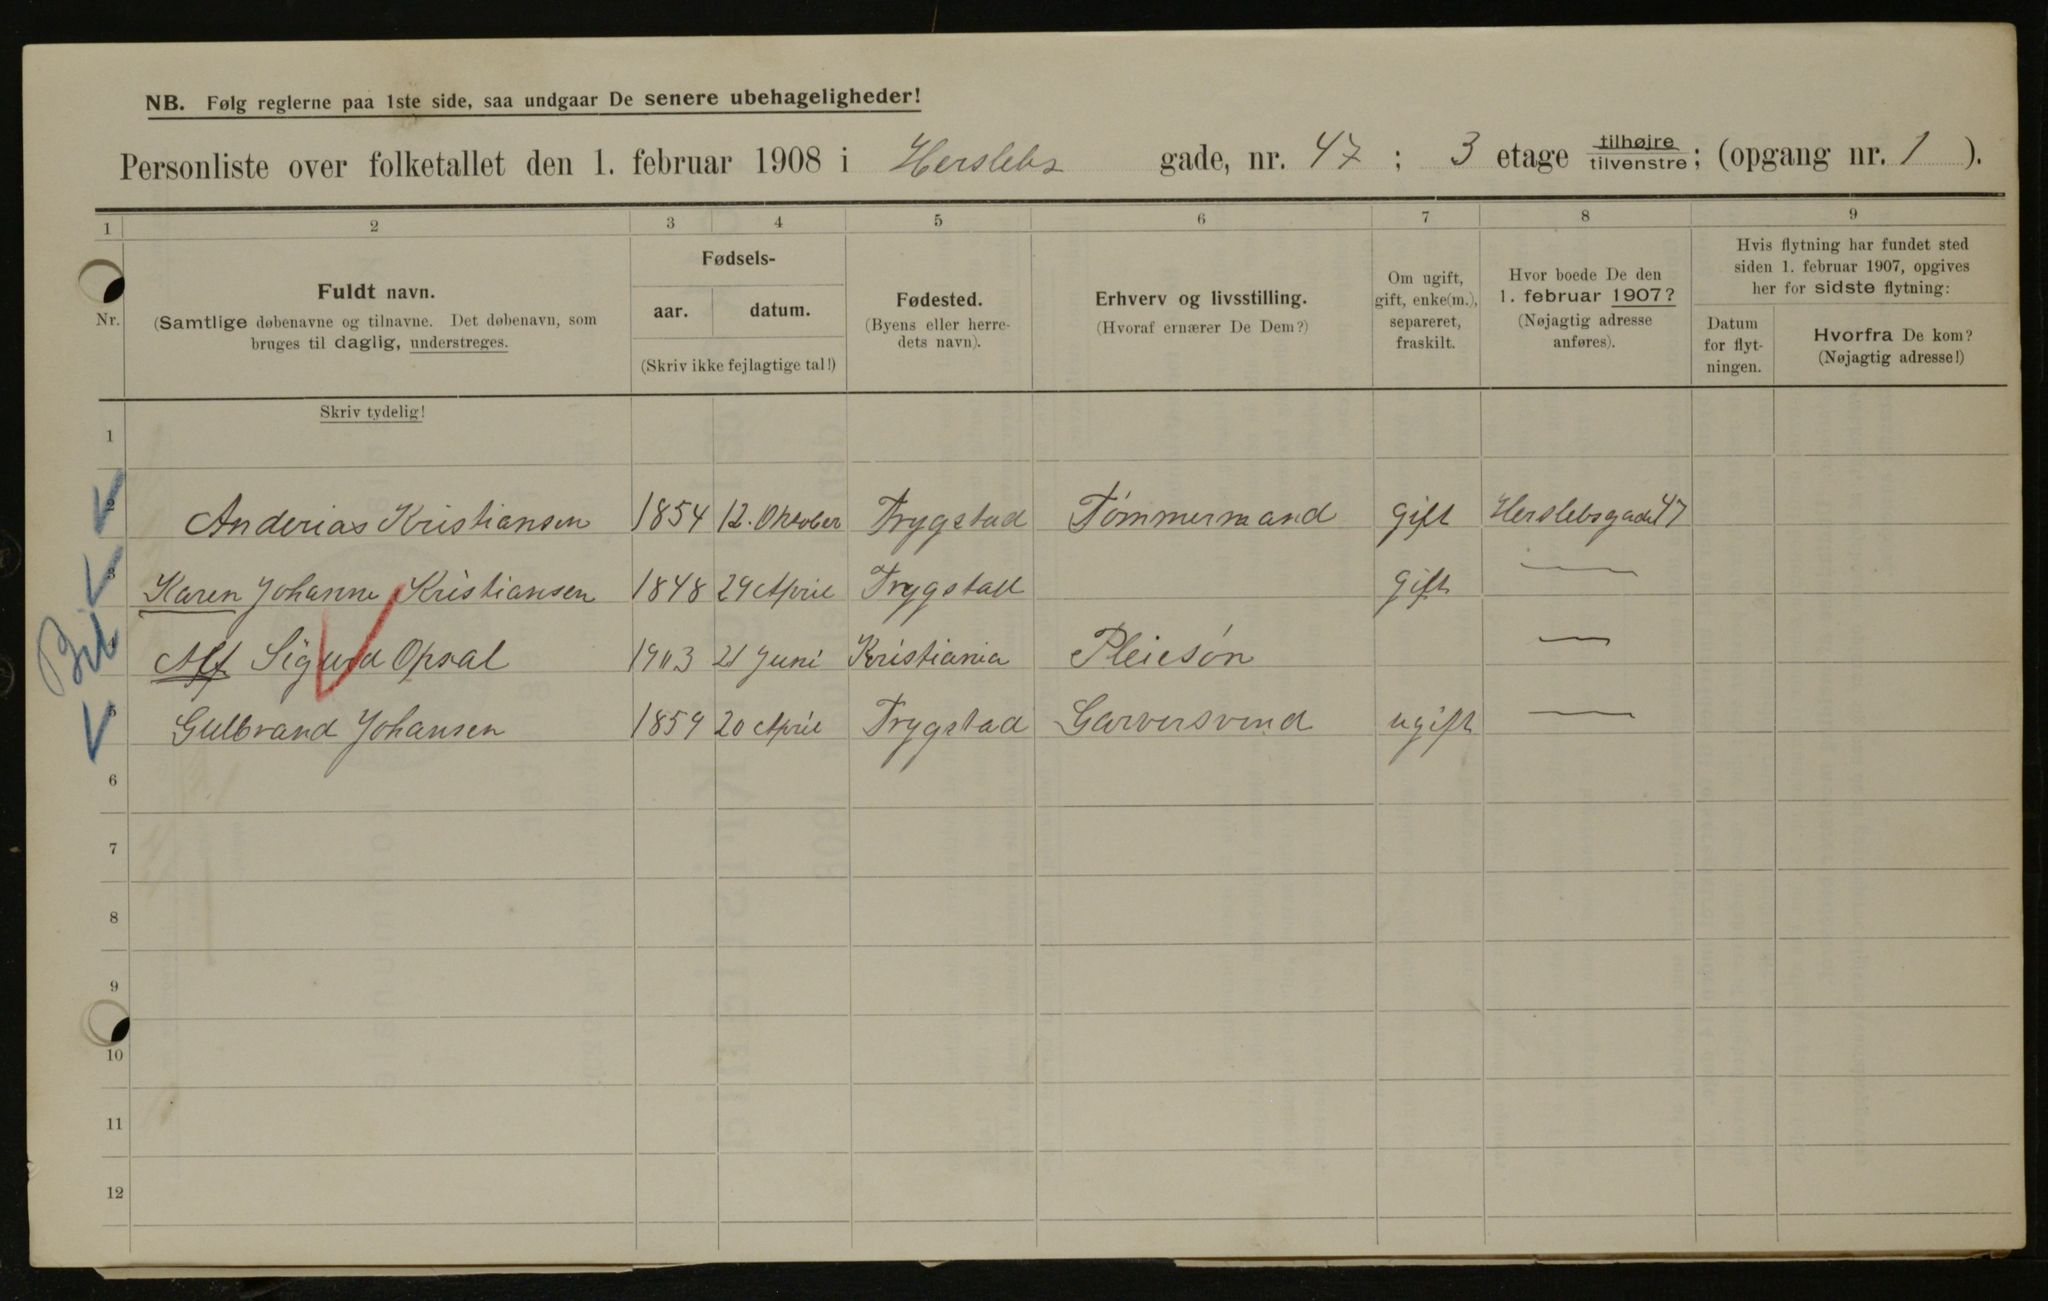 NB. Følg reglerne paa 1ste side, saa undgaar De senere ubehageligheder!
Personliste over folketallet den 1. februar 1908 i Herslebs gade, nr. 47 ; 3 etage tilhøjre/tilvenstre; (opgang nr. 1 ).
1 2 3 4 5 6 7 8 9
Nr.
Fuldt navn.
(Samtlige døbenavne og tilnavne. Det døbenavn, som
bruges til daglig, understreges.
Fødsels-
aar. datum.
(Skriv ikke fejlagtige tal!)
Fødested.
(Byens eller herre-
dets navn).
Erhverv og livsstilling.
(Hvoraf ernærer De Dem?)
Om ugift,
gift, enke(m.),
separeret,
fraskilt.
Hvor boede De den
1. februar 1907?
(Nøjagtig adresse
anføres).
Hvis flytning har fundet sted
siden 1. februar 1907, opgives
her for sidste flytning:
Datum
for flyt-
ningen.
Hvorfra De kom?
(Nøjagtig adresse!)
Skriv tydelig!
1
2 Anderias Kristiansen 1854 12. Oktober Trygstad Tømmermand gift Herslebsgade 47
3 Karen Johanne Kristiansen 1848 29 April Trygstad gift —
Alf Sigurd Opsal 1903 21 Juni Kristiania Pleiesøn —
5 Gulbrand Johansen 1859 20 April Trygstad Garversvend ugift —
6
7
8
9
10
11
12